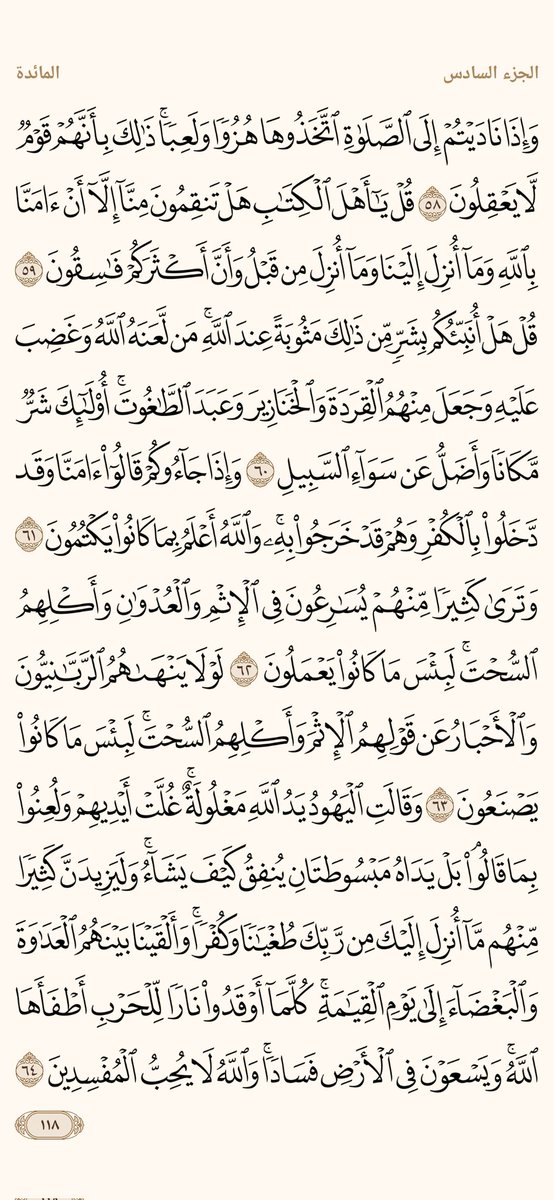 الجزء السادس
المائدة
وَإِذَا نَادَيْتُمْ إِلَى ٱلصَّلَوٰةِ ٱتَّخَذُوهَا هُزُوٗا وَلَعِبٗاۚ ذَٰلِكَ بِأَنَّهُمْ قَوْمٞ
لَّا يَعْقِلُونَ ٥٨ قُلْ يَٰٓأَهْلَ ٱلْكِتَٰبِ هَلْ تَنقِمُونَ مِنَّآ إِلَّآ أَنْ ءَامَنَّا
بِٱللَّهِ وَمَآ أُنزِلَ إِلَيْنَا وَمَآ أُنزِلَ مِن قَبْلُ وَأَنَّ أَكْثَرَكُمْ فَٰسِقُونَ ٥٩
قُلْ هَلْ أُنَبِّئُكُم بِشَرّٖ مِّن ذَٰلِكَ مَثُوبَةً عِندَ ٱللَّهِۚ مَن لَّعَنَهُ ٱللَّهُ وَغَضِبَ
عَلَيْهِ وَجَعَلَ مِنْهُمُ ٱلْقِرَدَةَ وَٱلْخَنَازِيرَ وَعَبَدَ ٱلطَّٰغُوتَۚ أُوْلَٰٓئِكَ شَرّٞ
مَّكَانٗا وَأَضَلُّ عَن سَوَآءِ ٱلسَّبِيلِ ٦٠ وَإِذَا جَآءُوكُمْ قَالُوٓاْ ءَامَنَّا وَقَد
دَّخَلُواْ بِٱلْكُفْرِ وَهُمْ قَدْ خَرَجُواْ بِهِۦۚ وَٱللَّهُ أَعْلَمُ بِمَا كَانُواْ يَكْتُمُونَ ٦١
وَتَرَىٰ كَثِيرٗا مِّنْهُمْ يُسَٰرِعُونَ فِي ٱلْإِثْمِ وَٱلْعُدْوَٰنِ وَأَكْلِهِمُ
ٱلسُّحْتَۚ لَبِئْسَ مَا كَانُواْ يَعْمَلُونَ ٦٢ لَوْلَا يَنْهَىٰهُمُ ٱلرَّبَّٰنِيُّونَ
وَٱلْأَحْبَارُ عَن قَوْلِهِمُ ٱلْإِثْمَ وَأَكْلِهِمُ ٱلسُّحْتَۚ لَبِئْسَ مَا كَانُواْ
يَصْنَعُونَ ٦٣ وَقَالَتِ ٱلْيَهُودُ يَدُ ٱللَّهِ مَغْلُولَةٌۚ غُلَّتْ أَيْدِيهِمْ وَلُعِنُواْ
بِمَا قَالُواْۘ بَلْ يَدَاهُ مَبْسُوطَتَانِ يُنفِقُ كَيْفَ يَشَآءُۚ وَلَيَزِيدَنَّ كَثِيرٗا
مِّنْهُم مَّآ أُنزِلَ إِلَيْكَ مِن رَّبِّكَ طُغْيَٰنٗا وَكُفْرٗاۚ وَأَلْقَيْنَا بَيْنَهُمُ ٱلْعَدَٰوَةَ
وَٱلْبَغْضَآءَ إِلَىٰ يَوْمِ ٱلْقِيَٰمَةِۚ كُلَّمَآ أَوْقَدُواْ نَارٗا لِّلْحَرْبِ أَطْفَأَهَا
ٱللَّهُۚ وَيَسْعَوْنَ فِي ٱلْأَرْضِ فَسَادٗاۚ وَٱللَّهُ لَا يُحِبُّ ٱلْمُفْسِدِينَ ٦٤
١١٨